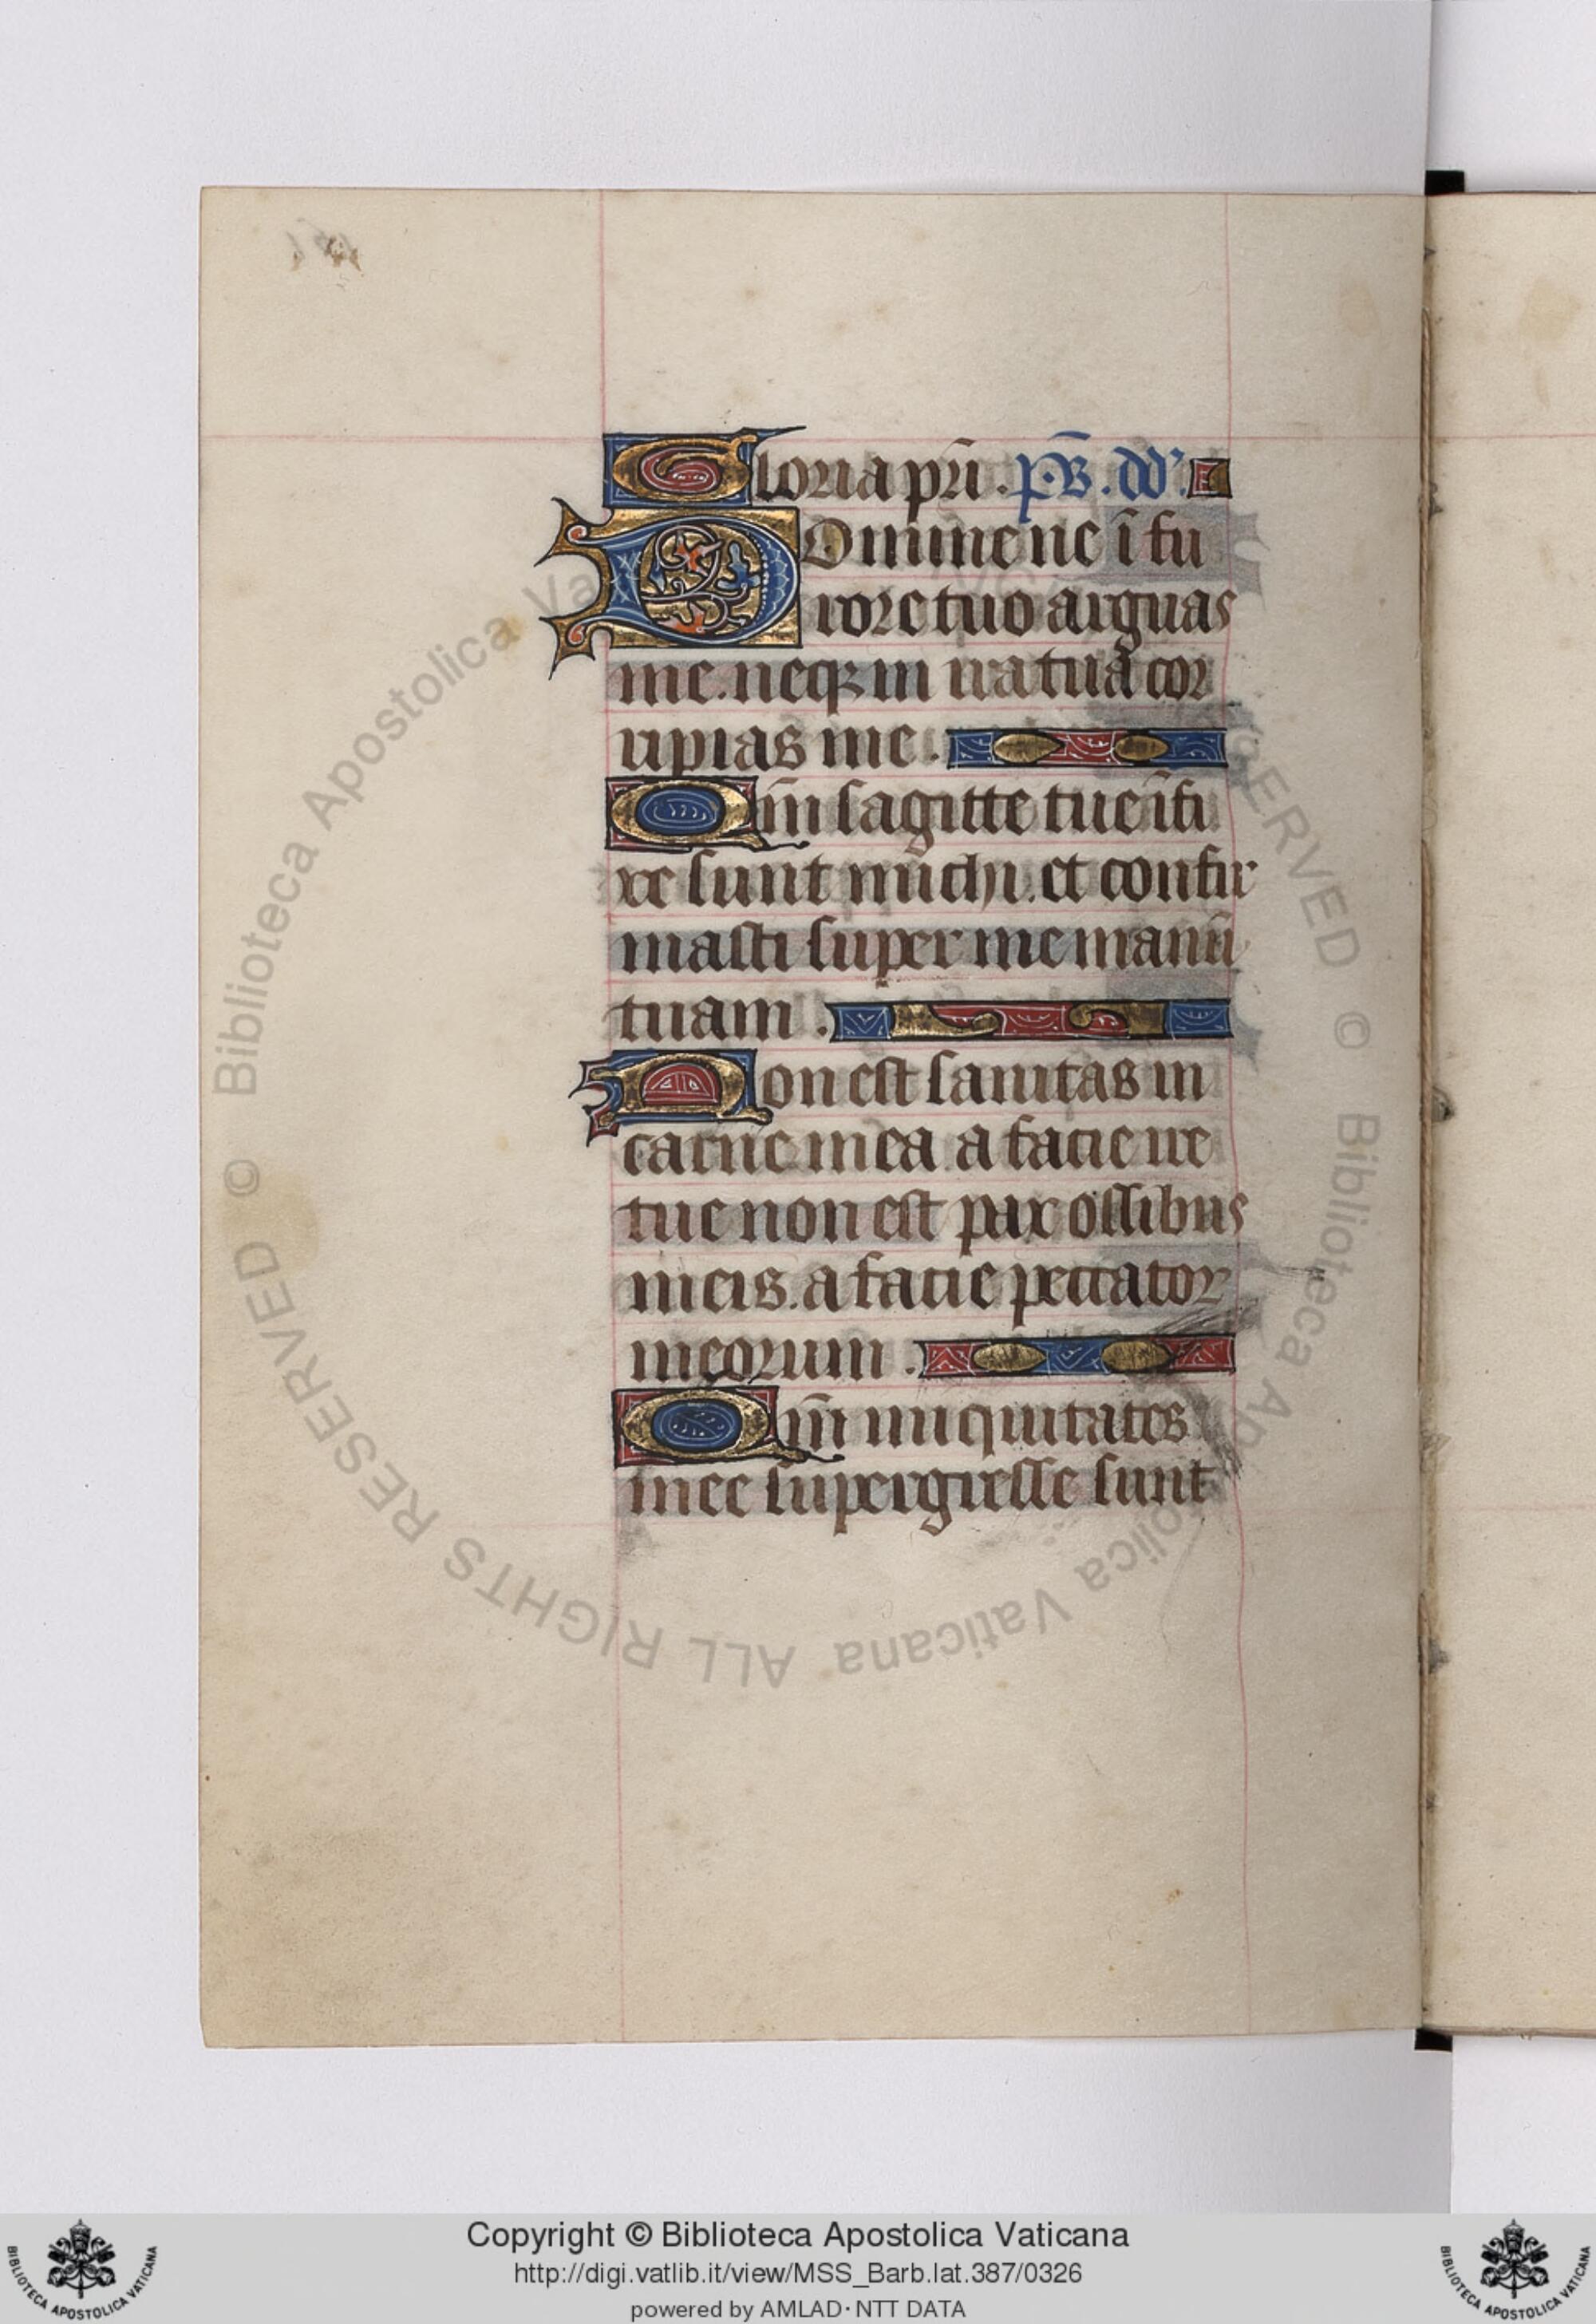 Gloria pr̄i . ps̄ . dd’.
Domine ne ī fu
rore tuo arguas
me. neq; in ira tua cor
ripias me .
Qm̄ sagitte tue īfi
xe sunt michi. et confir
masti super me manū
tuam .
Non est sanitas in
carne mea a facie ire
tue non est pax ossibus
meis. a facie peccator
meorum .
Qm̄ iniquitates
mee supergresse sunt
© Biblioteca Apostolica Vaticana ALL RIGHTS RESERVED
Copyright © Biblioteca Apostolica Vaticana
http://digi.vatlib.it/view/MSS_Barb.lat.387/0326
powered by AMLAD·NTT DATA
BIBLIOTECA APOSTOLICA VATICANA
BIBLIOTECA APOSTOLICA VATICANA